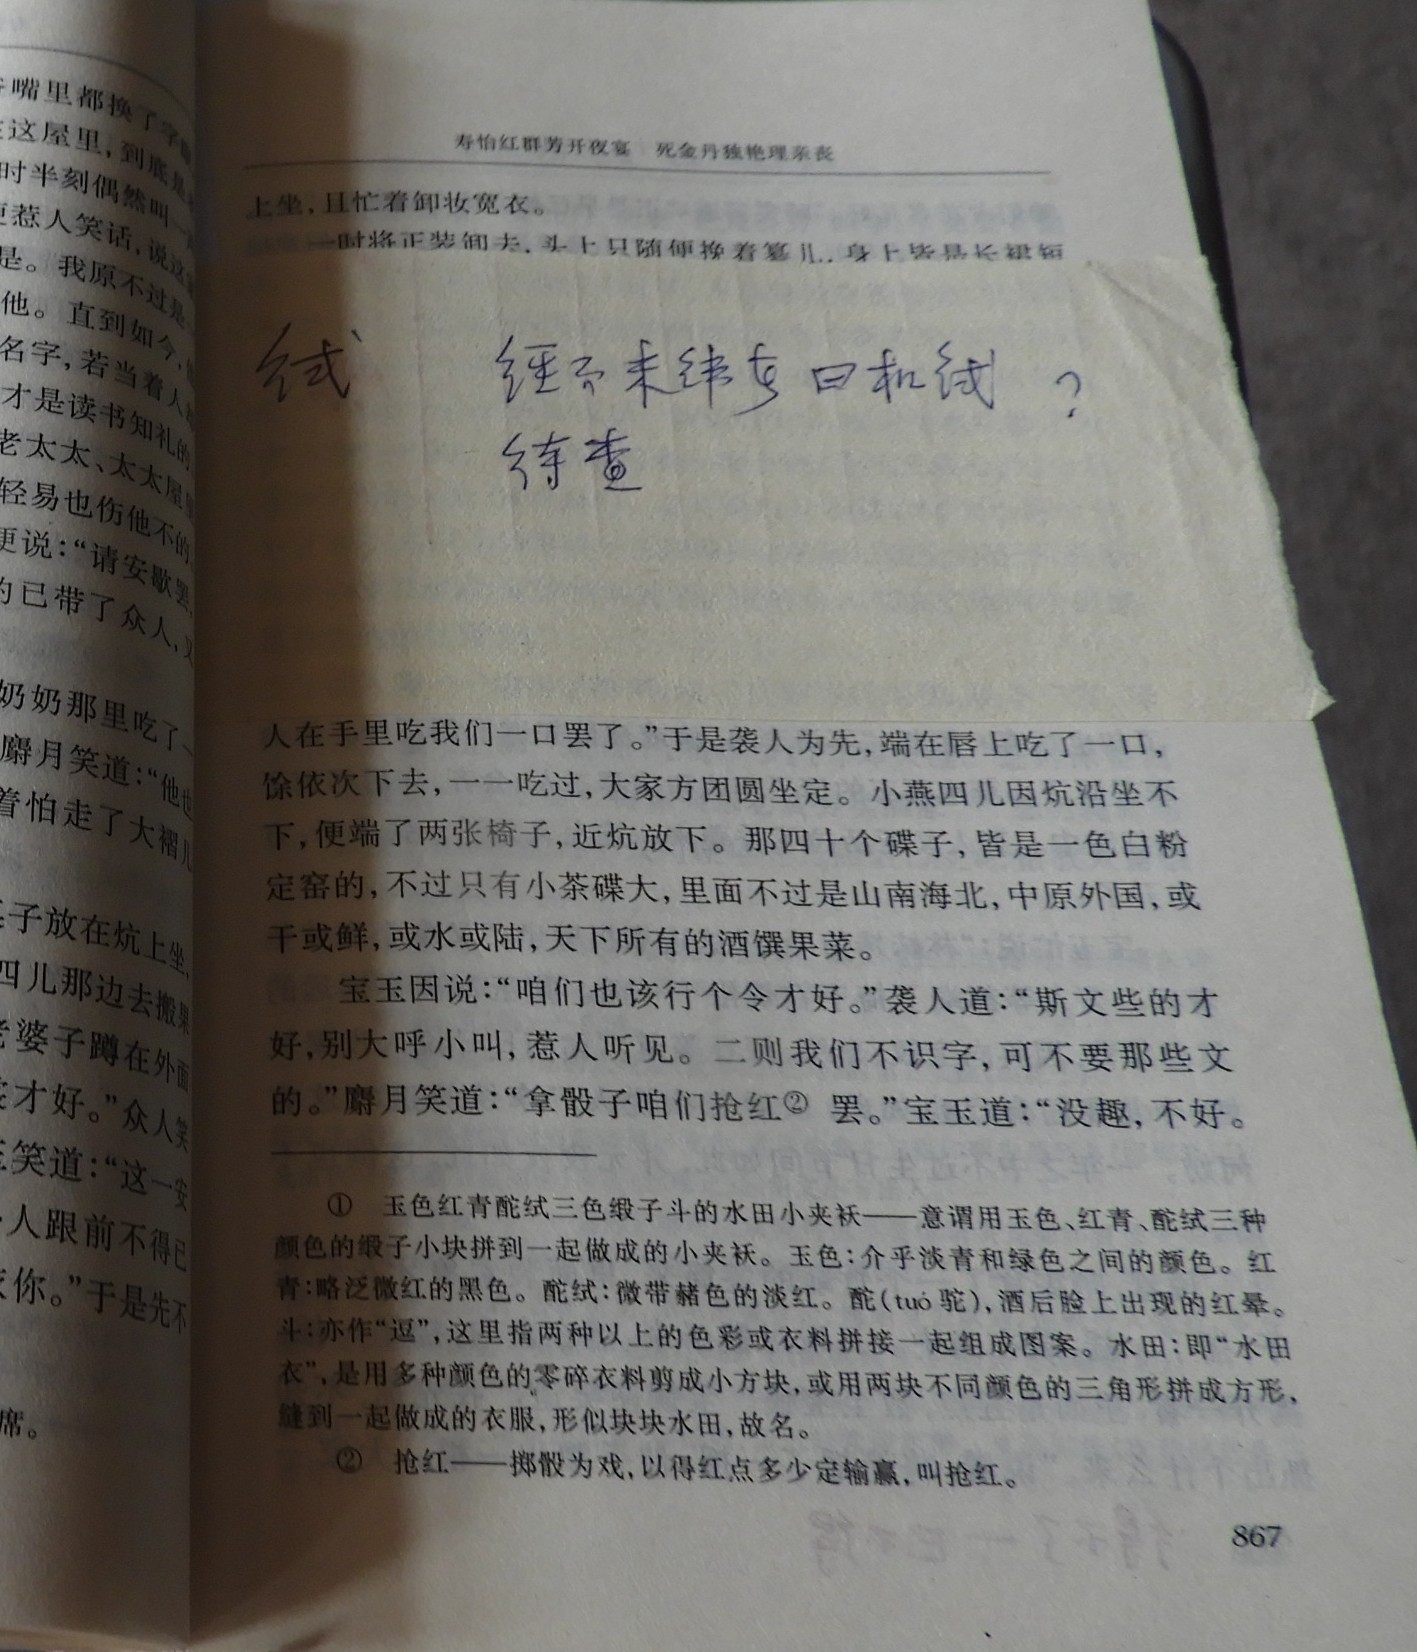 嘴里都换了字
这屋里，到底是
时半刻偶然叫一
惹人笑话，说这
是。我原不过是
他。直到如今，
名字，若当着人
才是读书知礼的
老太太、太太屋
轻易也伤他不的
更说：“请安歇罢，
的已带了众人，又
奶奶那里吃了一
麝月笑道：“他也
着怕走了大褶儿
子放在炕上坐，
四儿那边去搬果
老婆子蹲在外面
才好。”众人笑
笑道：“这一安
人跟前不得已
你。”于是先不
席。
寿怡红群芳开夜宴 死金丹独艳理亲丧
上坐，且忙着卸妆宽衣。
一时将正装卸去，头上只随便挽着纂儿，身上皆是长裙短
绒 经不未纬者曰机绒 ？
待查
人在手里吃我们一口罢了。”于是袭人为先，端在唇上吃了一口，
馀依次下去，一一吃过，大家方团圆坐定。小燕四儿因炕沿坐不
下，便端了两张椅子，近炕放下。那四十个碟子，皆是一色白粉
定窑的，不过只有小茶碟大，里面不过是山南海北，中原外国，或
干或鲜，或水或陆，天下所有的酒馔果菜。
宝玉因说：“咱们也该行个令才好。”袭人道：“斯文些的才
好，别大呼小叫，惹人听见。二则我们不识字，可不要那些文
的。”麝月笑道：“拿骰子咱们抢红② 罢。”宝玉道：“没趣，不好。
① 玉色红青酡绒三色缎子斗的水田小夹袄——意谓用玉色、红青、酡绒三种
颜色的缎子小块拼到一起做成的小夹袄。玉色：介乎淡青和绿色之间的颜色。红
青：略泛微红的黑色。酡绒：微带赭色的淡红。酡（tuó驼），酒后脸上出现的红晕。
斗：亦作“逗”，这里指两种以上的色彩或衣料拼接一起组成图案。水田：即“水田
衣”，是用多种颜色的零碎衣料剪成小方块，或用两块不同颜色的三角形拼成方形，
缝到一起做成的衣服，形似块块水田，故名。
② 抢红——掷骰为戏，以得红点多少定输赢，叫抢红。
867